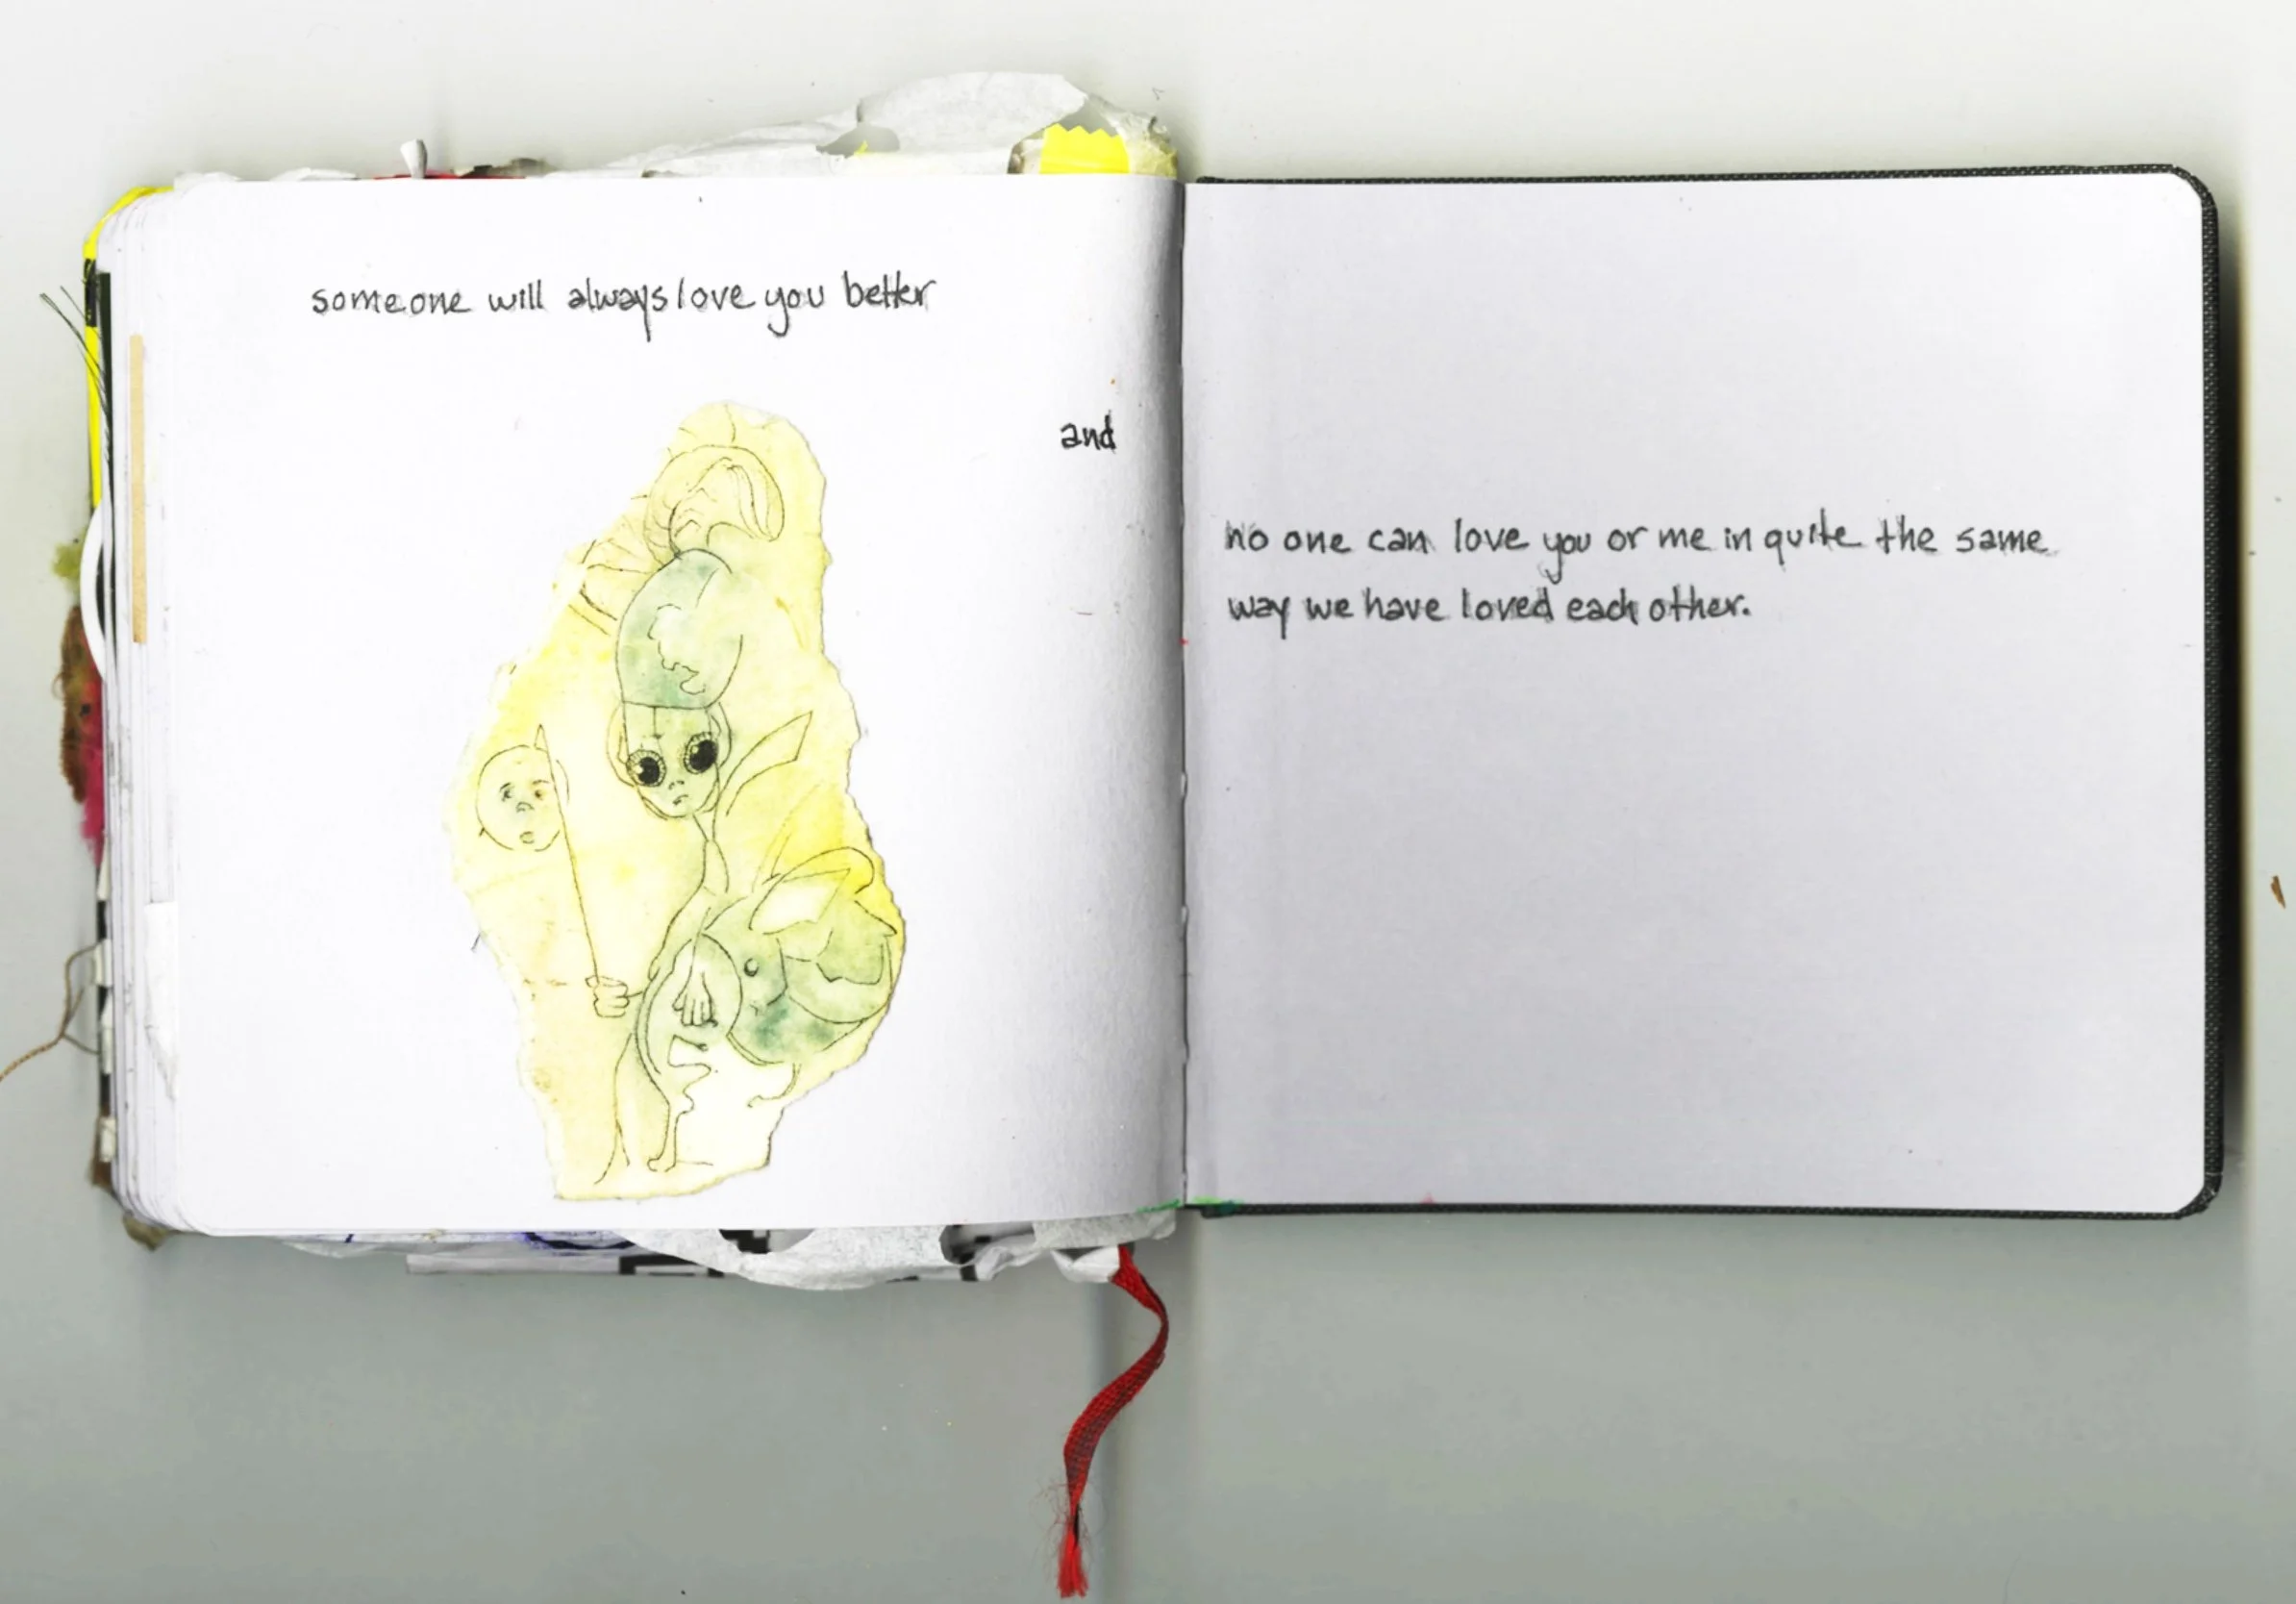 someone will always love you better
and
no one can love you or me in quite the same
way we have loved each other.